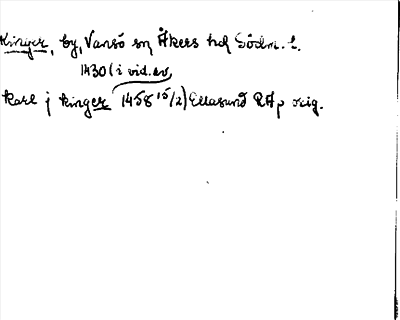 Kinger, by, Vansö sn Åkers hd Södm. l.
1430 (i vid. av
Karl j kinger 1458 15/2) Ellasund RAp orig.